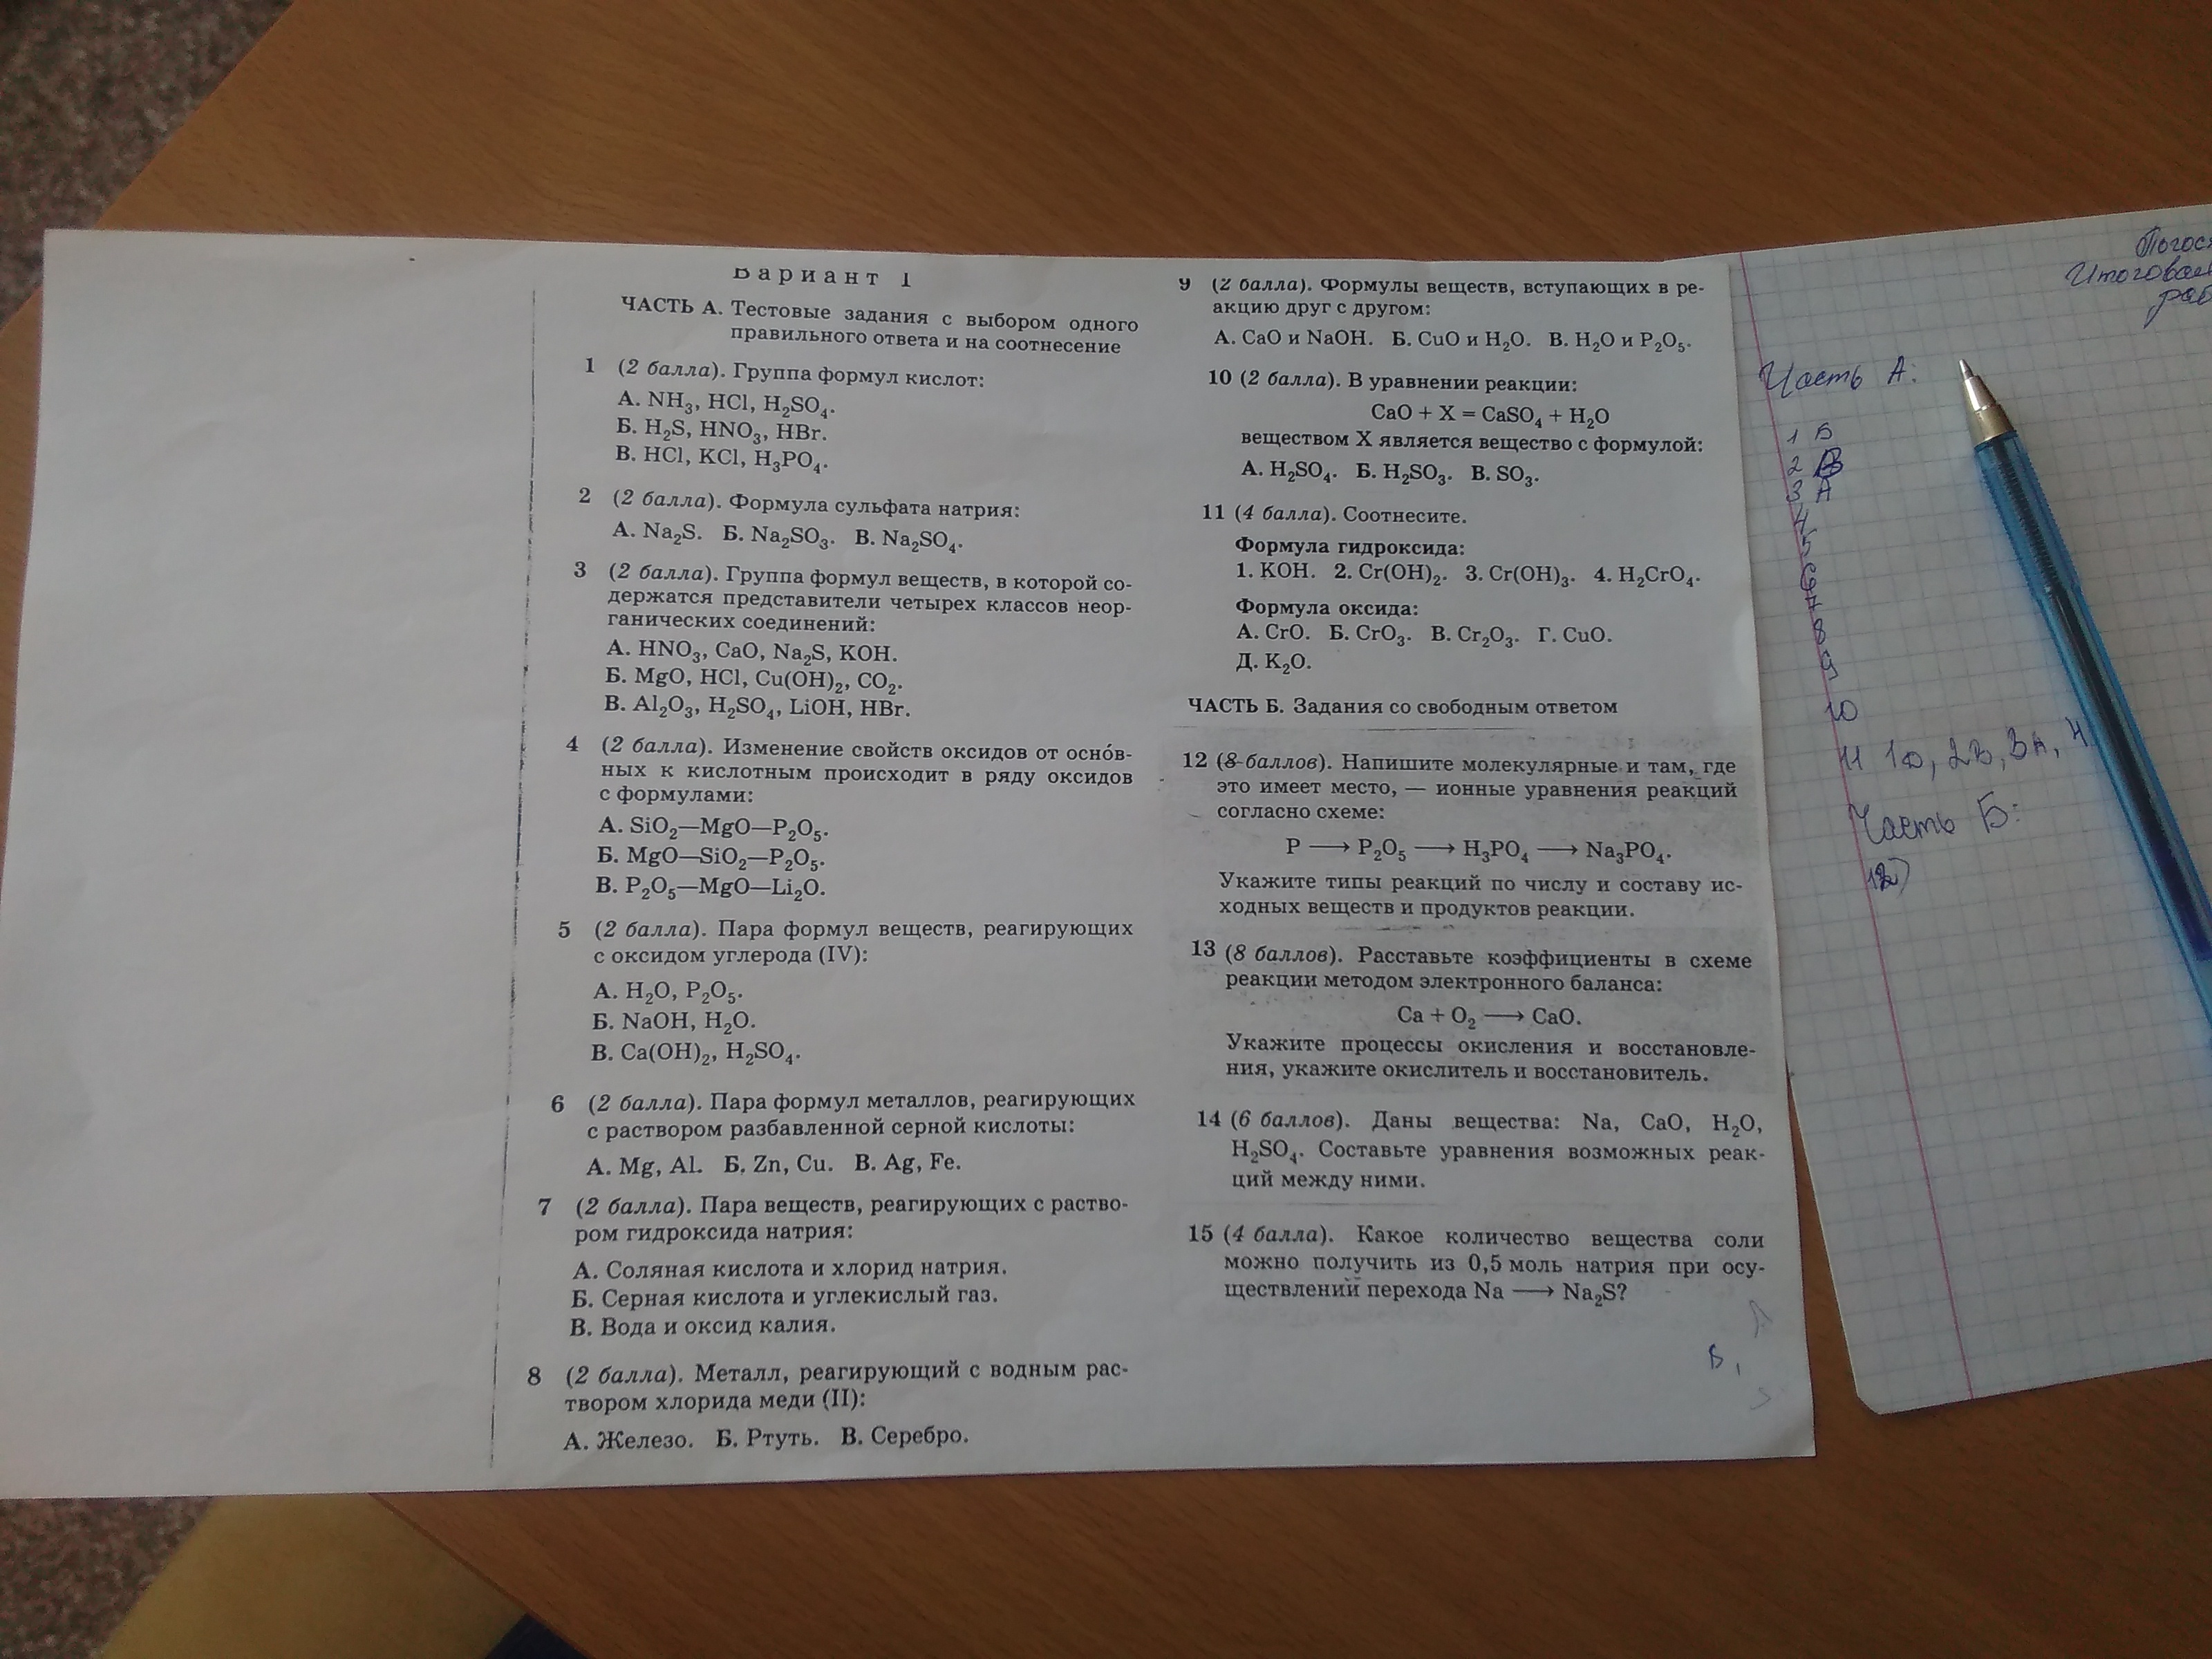 Вариант 1
ЧАСТЬ А. Тестовые задания с выбором одного
правильного ответа и на соотнесение
1 (2 балла). Группа формул кислот:
А. NH₃, HCl, H₂SO₄.
Б. H₂S, HNO₃, HBr.
В. HCl, KCl, H₃PO₄.
2 (2 балла). Формула сульфата натрия:
А. Na₂S. Б. Na₂SO₃. В. Na₂SO₄.
3 (2 балла). Группа формул веществ, в которой со-
держатся представители четырех классов неор-
ганических соединений:
А. HNO₃, CaO, Na₂S, KOH.
Б. MgO, HCl, Cu(OH)₂, CO₂.
В. Al₂O₃, H₂SO₄, LiOH, HBr.
4 (2 балла). Изменение свойств оксидов от осно́в-
ных к кислотным происходит в ряду оксидов
с формулами:
А. SiO₂—MgO—P₂O₅.
Б. MgO—SiO₂—P₂O₅.
В. P₂O₅—MgO—Li₂O.
5 (2 балла). Пара формул веществ, реагирующих
с оксидом углерода (IV):
А. H₂O, P₂O₅.
Б. NaOH, H₂O.
В. Ca(OH)₂, H₂SO₄.
6 (2 балла). Пара формул металлов, реагирующих
с раствором разбавленной серной кислоты:
А. Mg, Al. Б. Zn, Cu. В. Ag, Fe.
7 (2 балла). Пара веществ, реагирующих с раство-
ром гидроксида натрия:
А. Соляная кислота и хлорид натрия.
Б. Серная кислота и углекислый газ.
В. Вода и оксид калия.
8 (2 балла). Металл, реагирующий с водным рас-
твором хлорида меди (II):
А. Железо. Б. Ртуть. В. Серебро.
9 (2 балла). Формулы веществ, вступающих в ре-
акцию друг с другом:
А. CaO и NaOH. Б. CuO и H₂O. В. H₂O и P₂O₅.
10 (2 балла). В уравнении реакции:
CaO + X = CaSO₄ + H₂O
веществом X является вещество с формулой:
А. H₂SO₄. Б. H₂SO₃. В. SO₃.
11 (4 балла). Соотнесите.
Формула гидроксида:
1. KOH. 2. Cr(OH)₂. 3. Cr(OH)₃. 4. H₂CrO₄.
Формула оксида:
А. CrO. Б. CrO₃. В. Cr₂O₃. Г. CuO.
Д. K₂O.
ЧАСТЬ Б. Задания со свободным ответом
12 (8 баллов). Напишите молекулярные и там, где
это имеет место, — ионные уравнения реакций
согласно схеме:
P ⟶ P₂O₅ ⟶ H₃PO₄ ⟶ Na₃PO₄.
Укажите типы реакций по числу и составу ис-
ходных веществ и продуктов реакции.
13 (8 баллов). Расставьте коэффициенты в схеме
реакции методом электронного баланса:
Ca + O₂ ⟶ CaO.
Укажите процессы окисления и восстановле-
ния, укажите окислитель и восстановитель.
14 (6 баллов). Даны вещества: Na, CaO, H₂O,
H₂SO₄. Составьте уравнения возможных реак-
ций между ними.
15 (4 балла). Какое количество вещества соли
можно получить из 0,5 моль натрия при осу-
ществлений перехода Na ⟶ Na₂S?
Часть А:
1 Б
2 В
3 А
4
5
6
7
8
9
10
11
Часть Б:
12)